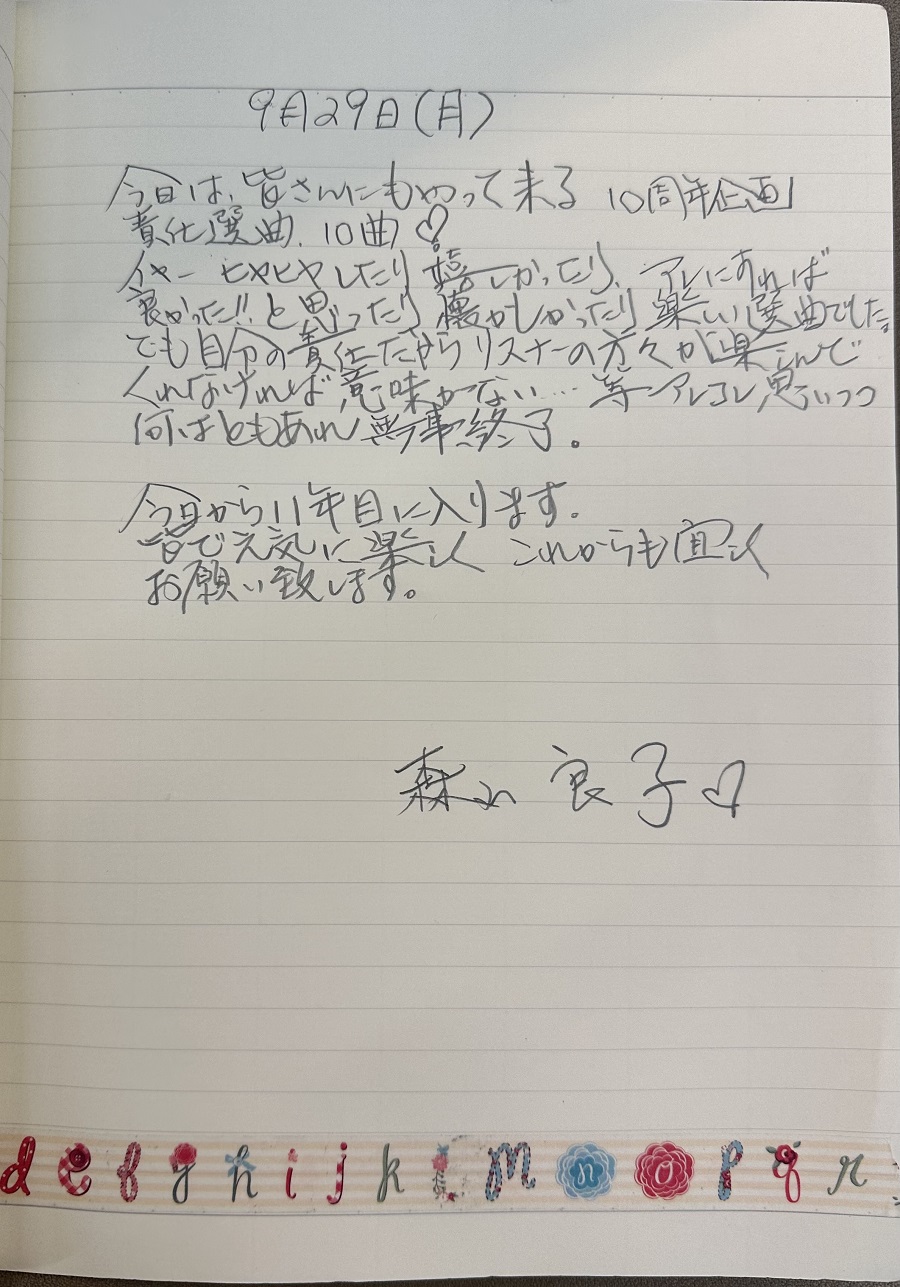 9月29日(月)
今日は、皆さんにもやって来る 10周年企画
責任選曲、10曲♡。
イヤー ヒヤヒヤしたり 嬉しかったり、アレにすれば
良かった!! と思ったり 懐かしかったり 楽しい選曲でした。
でも自分の責任だから リスナーの方々が楽しんで
くれなければ 意味がない… 等 アレコレ思いつつ
何はともあれ 無事終了。
今日から11年目に入ります。
皆で元気に楽しく これからも宜しく
お願い致します。
森山 良子♡
d e f g h i j k l m n o p q r